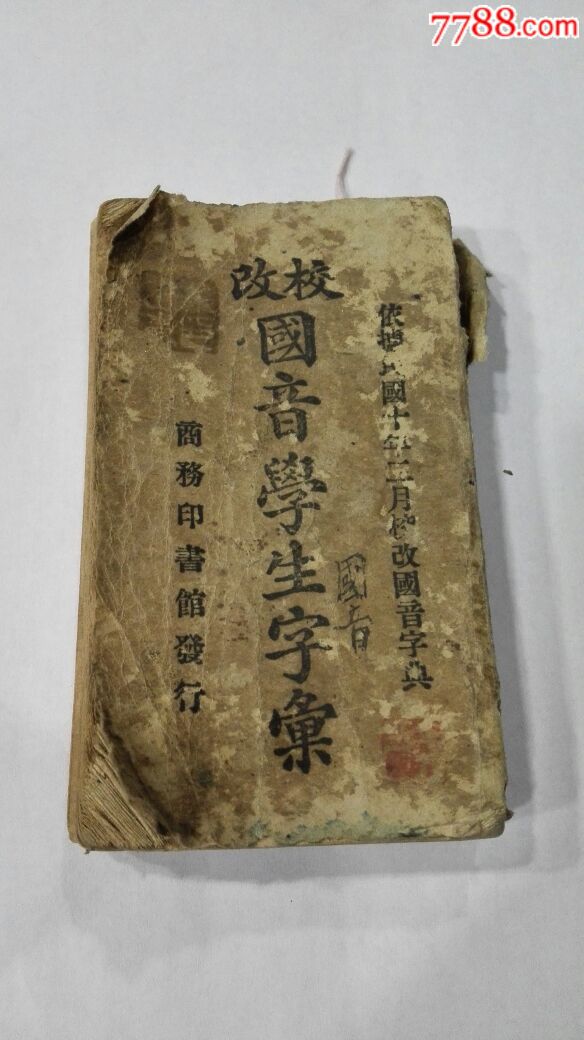 7788.com
依據民國十年二月校改國音字典
校改
國音學生字彙
國音
商務印書館發行